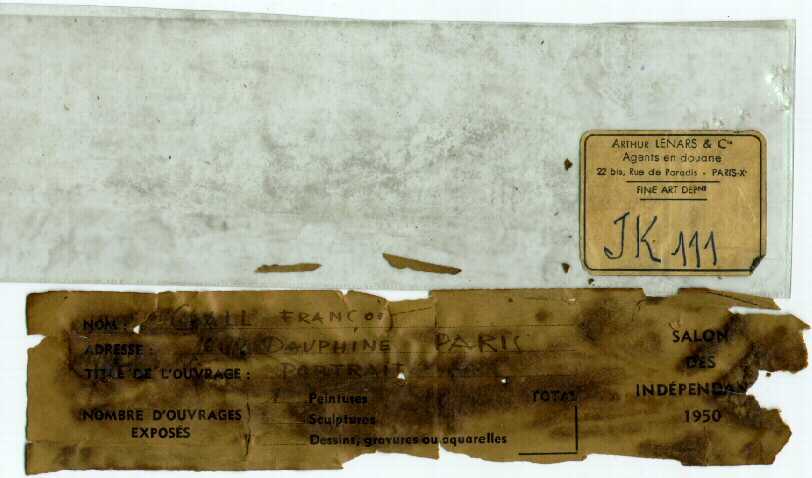 ARTHUR LENARS & Cie
Agents en douane
22 bis, Rue de Paradis - PARIS-Xe
FINE ART DEPnt
JK 111
NOM : GALL FRANÇOIS
ADRESSE : DAUPHINE PARIS
TITRE DE L'OUVRAGE : PORTRAIT
NOMBRE D'OUVRAGES EXPOSÉS
Peintures
Sculptures
Dessins, gravures ou aquarelles
TOTAL
SALON
DES
INDÉPENDAN
1950